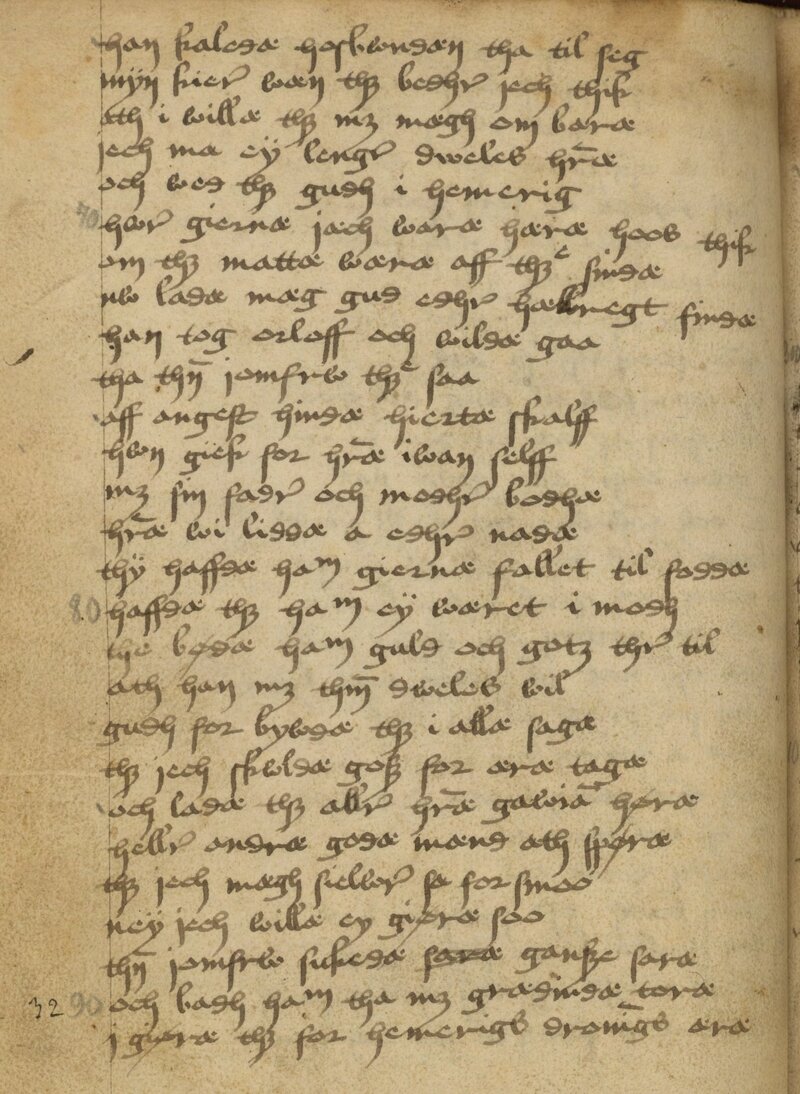 han kaledæ hosbwndæn tha til seg
myn kier wæn thꝫ bedhr̄ jech thik
ath i willæ thꝫ mꝫ mægh om bæræ
jech ma ey lengr̄ dweles hr̄æ
och wed thꝫ gudh i hemerig
hwr̄ giernæ jæch waræ hæræ hoos thik
om thꝫ mattæ wæræ aff thꝫͤ sindæ
nw ladæ mæg gud edhr̄ hælbregt findæ
han tog orloff och wildæ gaa
tha thn̄ jomfrw thꝫͤ saa
aff angest hindæ hiertæ skalff
hwn giek for hr̄æ iwan selff
mꝫ sin fadr̄ och modhr̄ bodhæ
hr̄æ wi liddæ a edhr̄ nadæ
thy haffdæ haᵐ giernæ fallet til foddæ
80 haffdæ thꝫ haᵐ ey wæret i modh
the bødæ haᵐ guld och gotꝫ thr̄ til
ath han mꝫ thm̄ dweles wil
gudh for bywdæ thꝫ i allæ sagæ
thꝫ jech skuldæ gotꝫ for æræ tagæ
och ladæ thꝫ allr̄ hr̄æ gawian høræ
hellr̄ andræ godæ mænd ath spøræ
thꝫ jech mægh sielwr̄ sa forsmoo
ney jech willæ ey giøræ soo
thn̄ jomfrw sukedæ saræ ganskæ saræ
32 90 och badh haᵐ tha mꝫ grædindæ toræ
j giøræ thꝫ for hemerigs dronīgs æræ